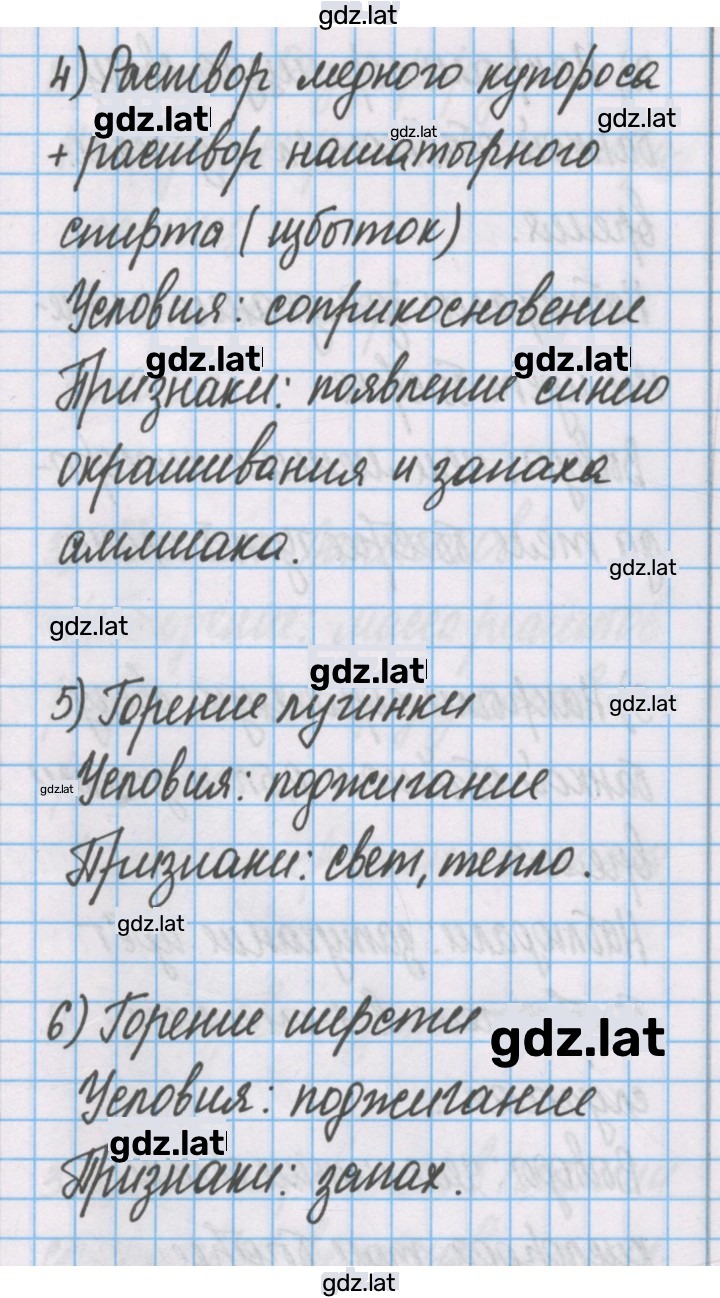 gdz.lat
4) Раствор медного купороса
gdz.lat gdz.lat gdz.lat
+ раствор нашатырного
спирта (избыток)
Условия: соприкосновение
gdz.lat gdz.lat
Признаки: появление синего
окрашивания и запаха
аммиака.
gdz.lat
gdz.lat
gdz.lat
5) Горение лучинки
gdz.lat
gdz.lat Условия: поджигание
Признаки: свет, тепло.
gdz.lat
6) Горение шерсти
gdz.lat
Условия: поджигание
gdz.lat
Признаки: запах.
gdz.lat